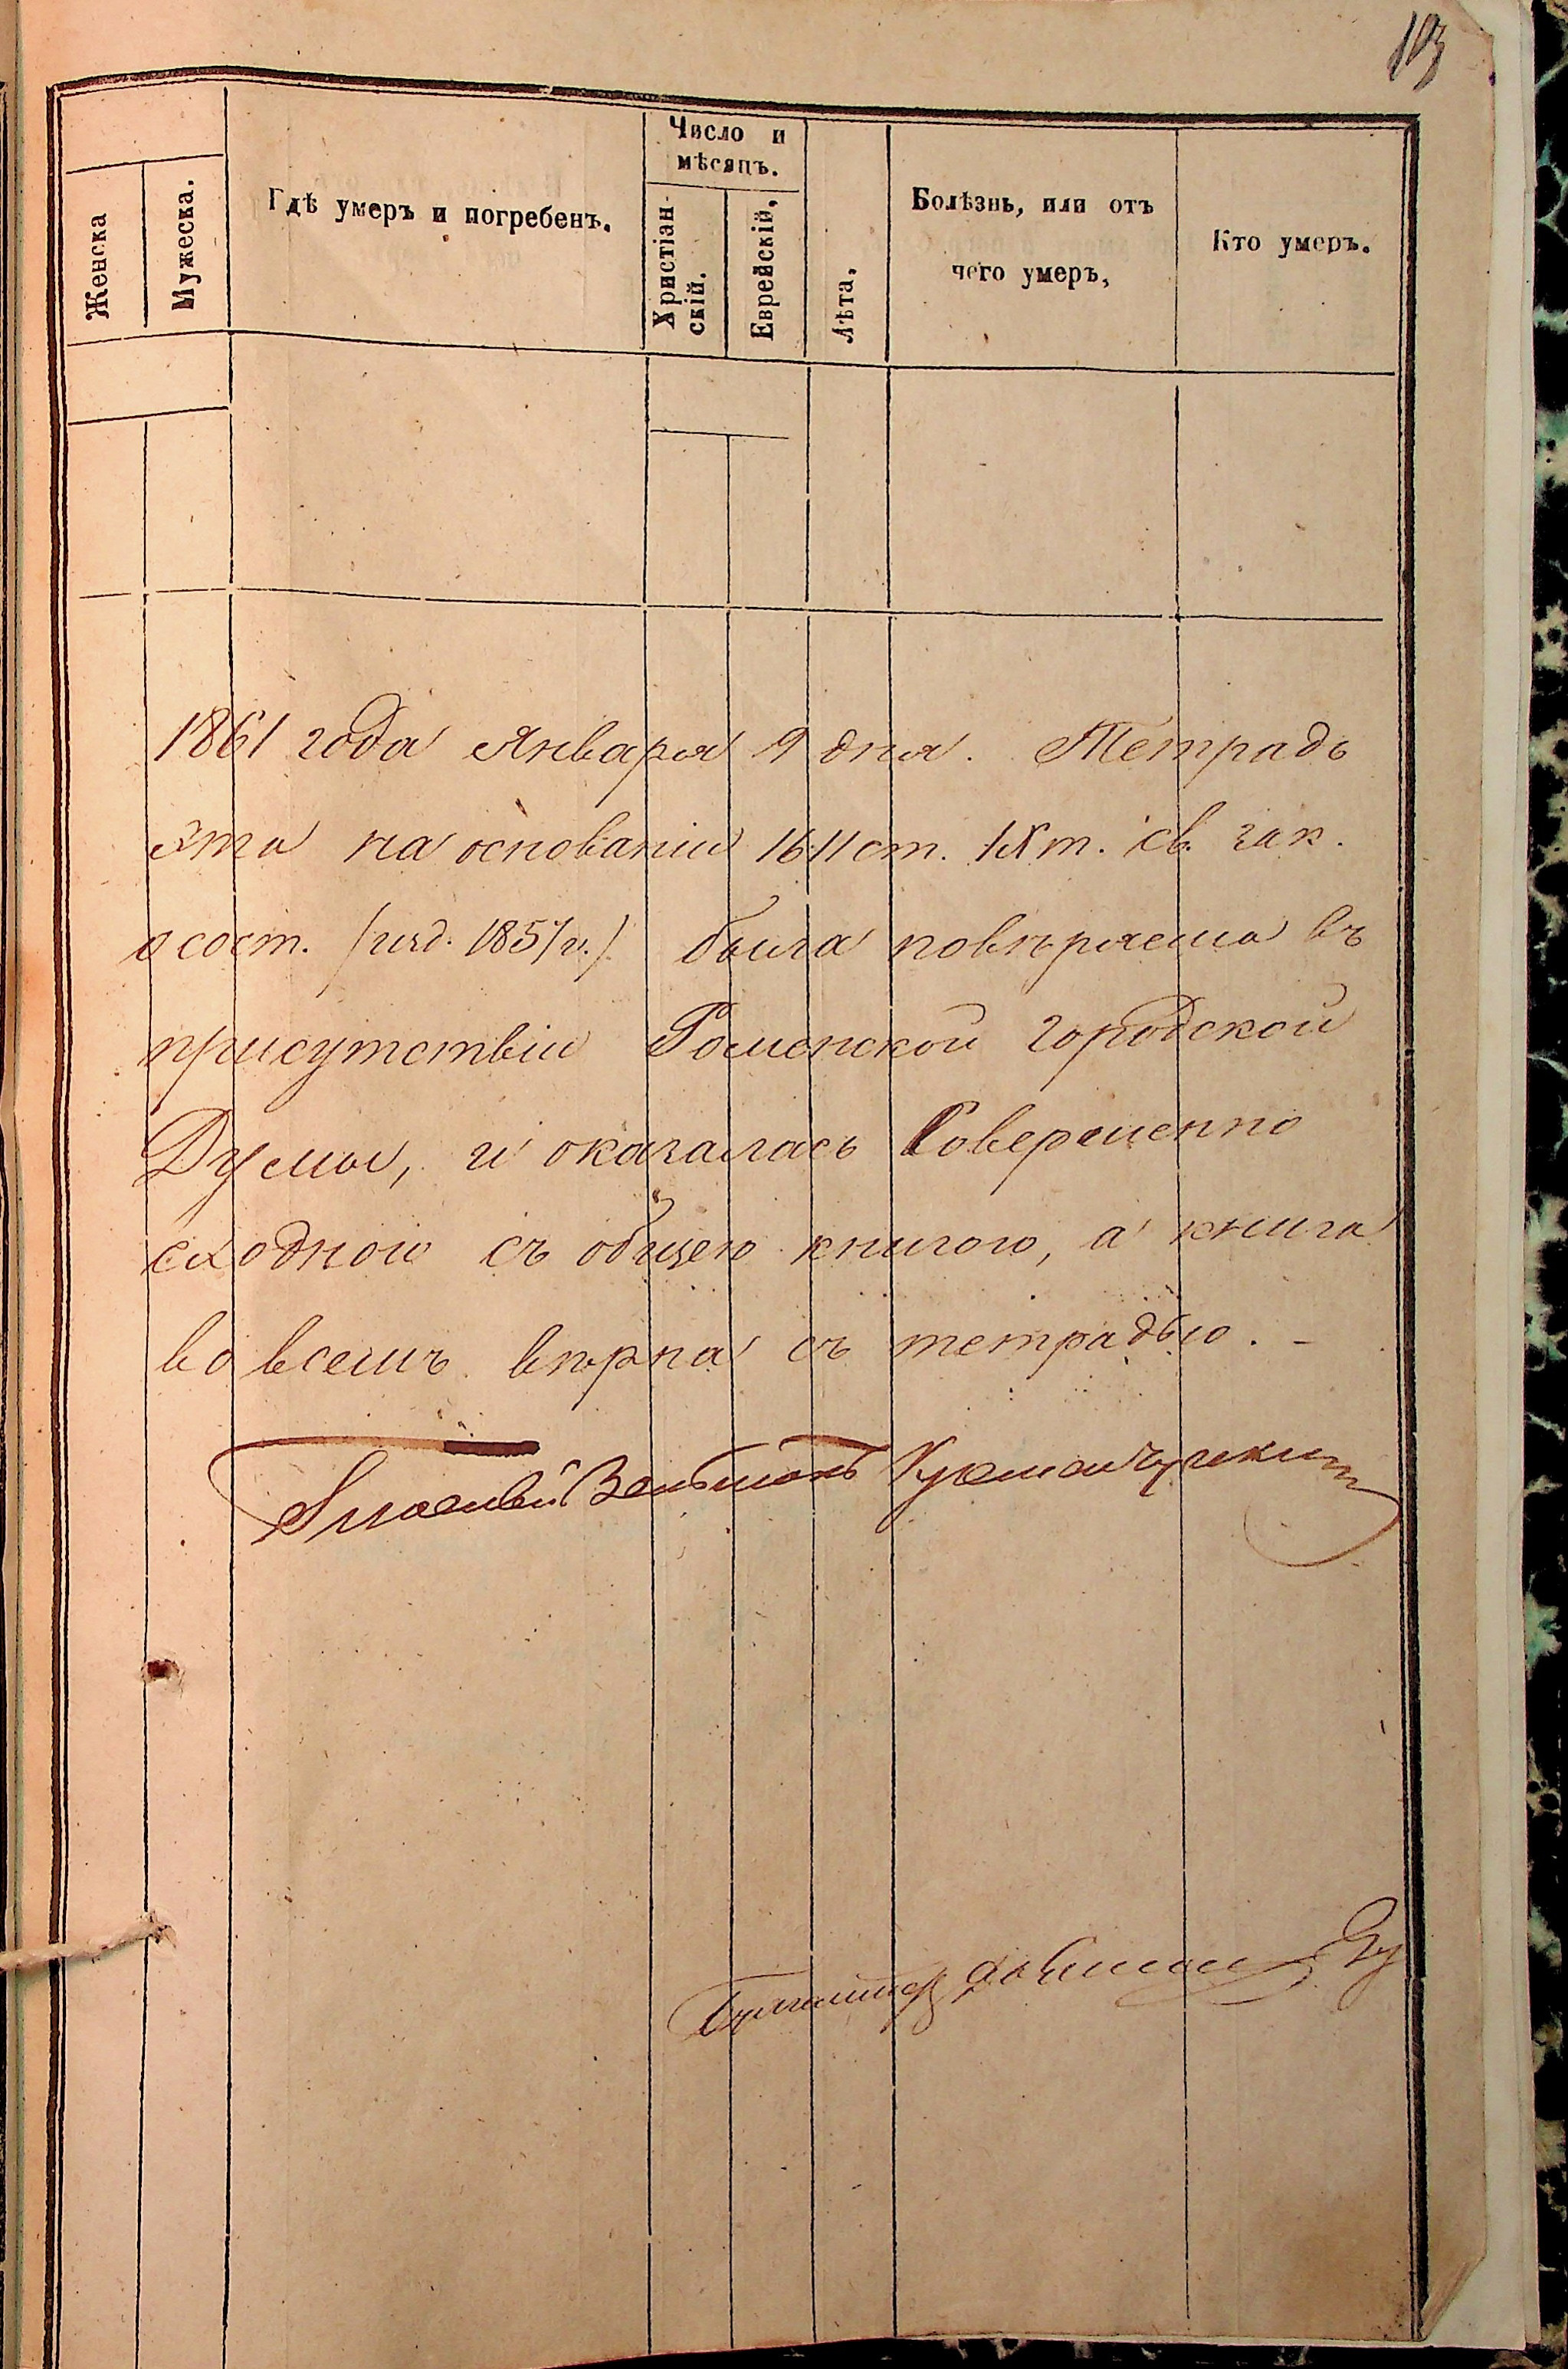 103
Женска
Мужеска.
Гдѣ умеръ и погребенъ.
Число и
мѣсяцъ.
Христіан-
скій.
Еврейскій.
Лѣта.
Болѣзнь, или отъ
чего умеръ,
Кто умеръ.
1861 года Января 9 дня. Тетрадь
эта на основаніи 1611 ст. IX т. св. зак.
о сост. /изд. 1857 г./ была повѣряема въ
присутствіи Роменской городской
Думы, и оказалась Совершенно
сходною съ общею книгою, а книга
во всемъ вѣрна съ тетрадью. –